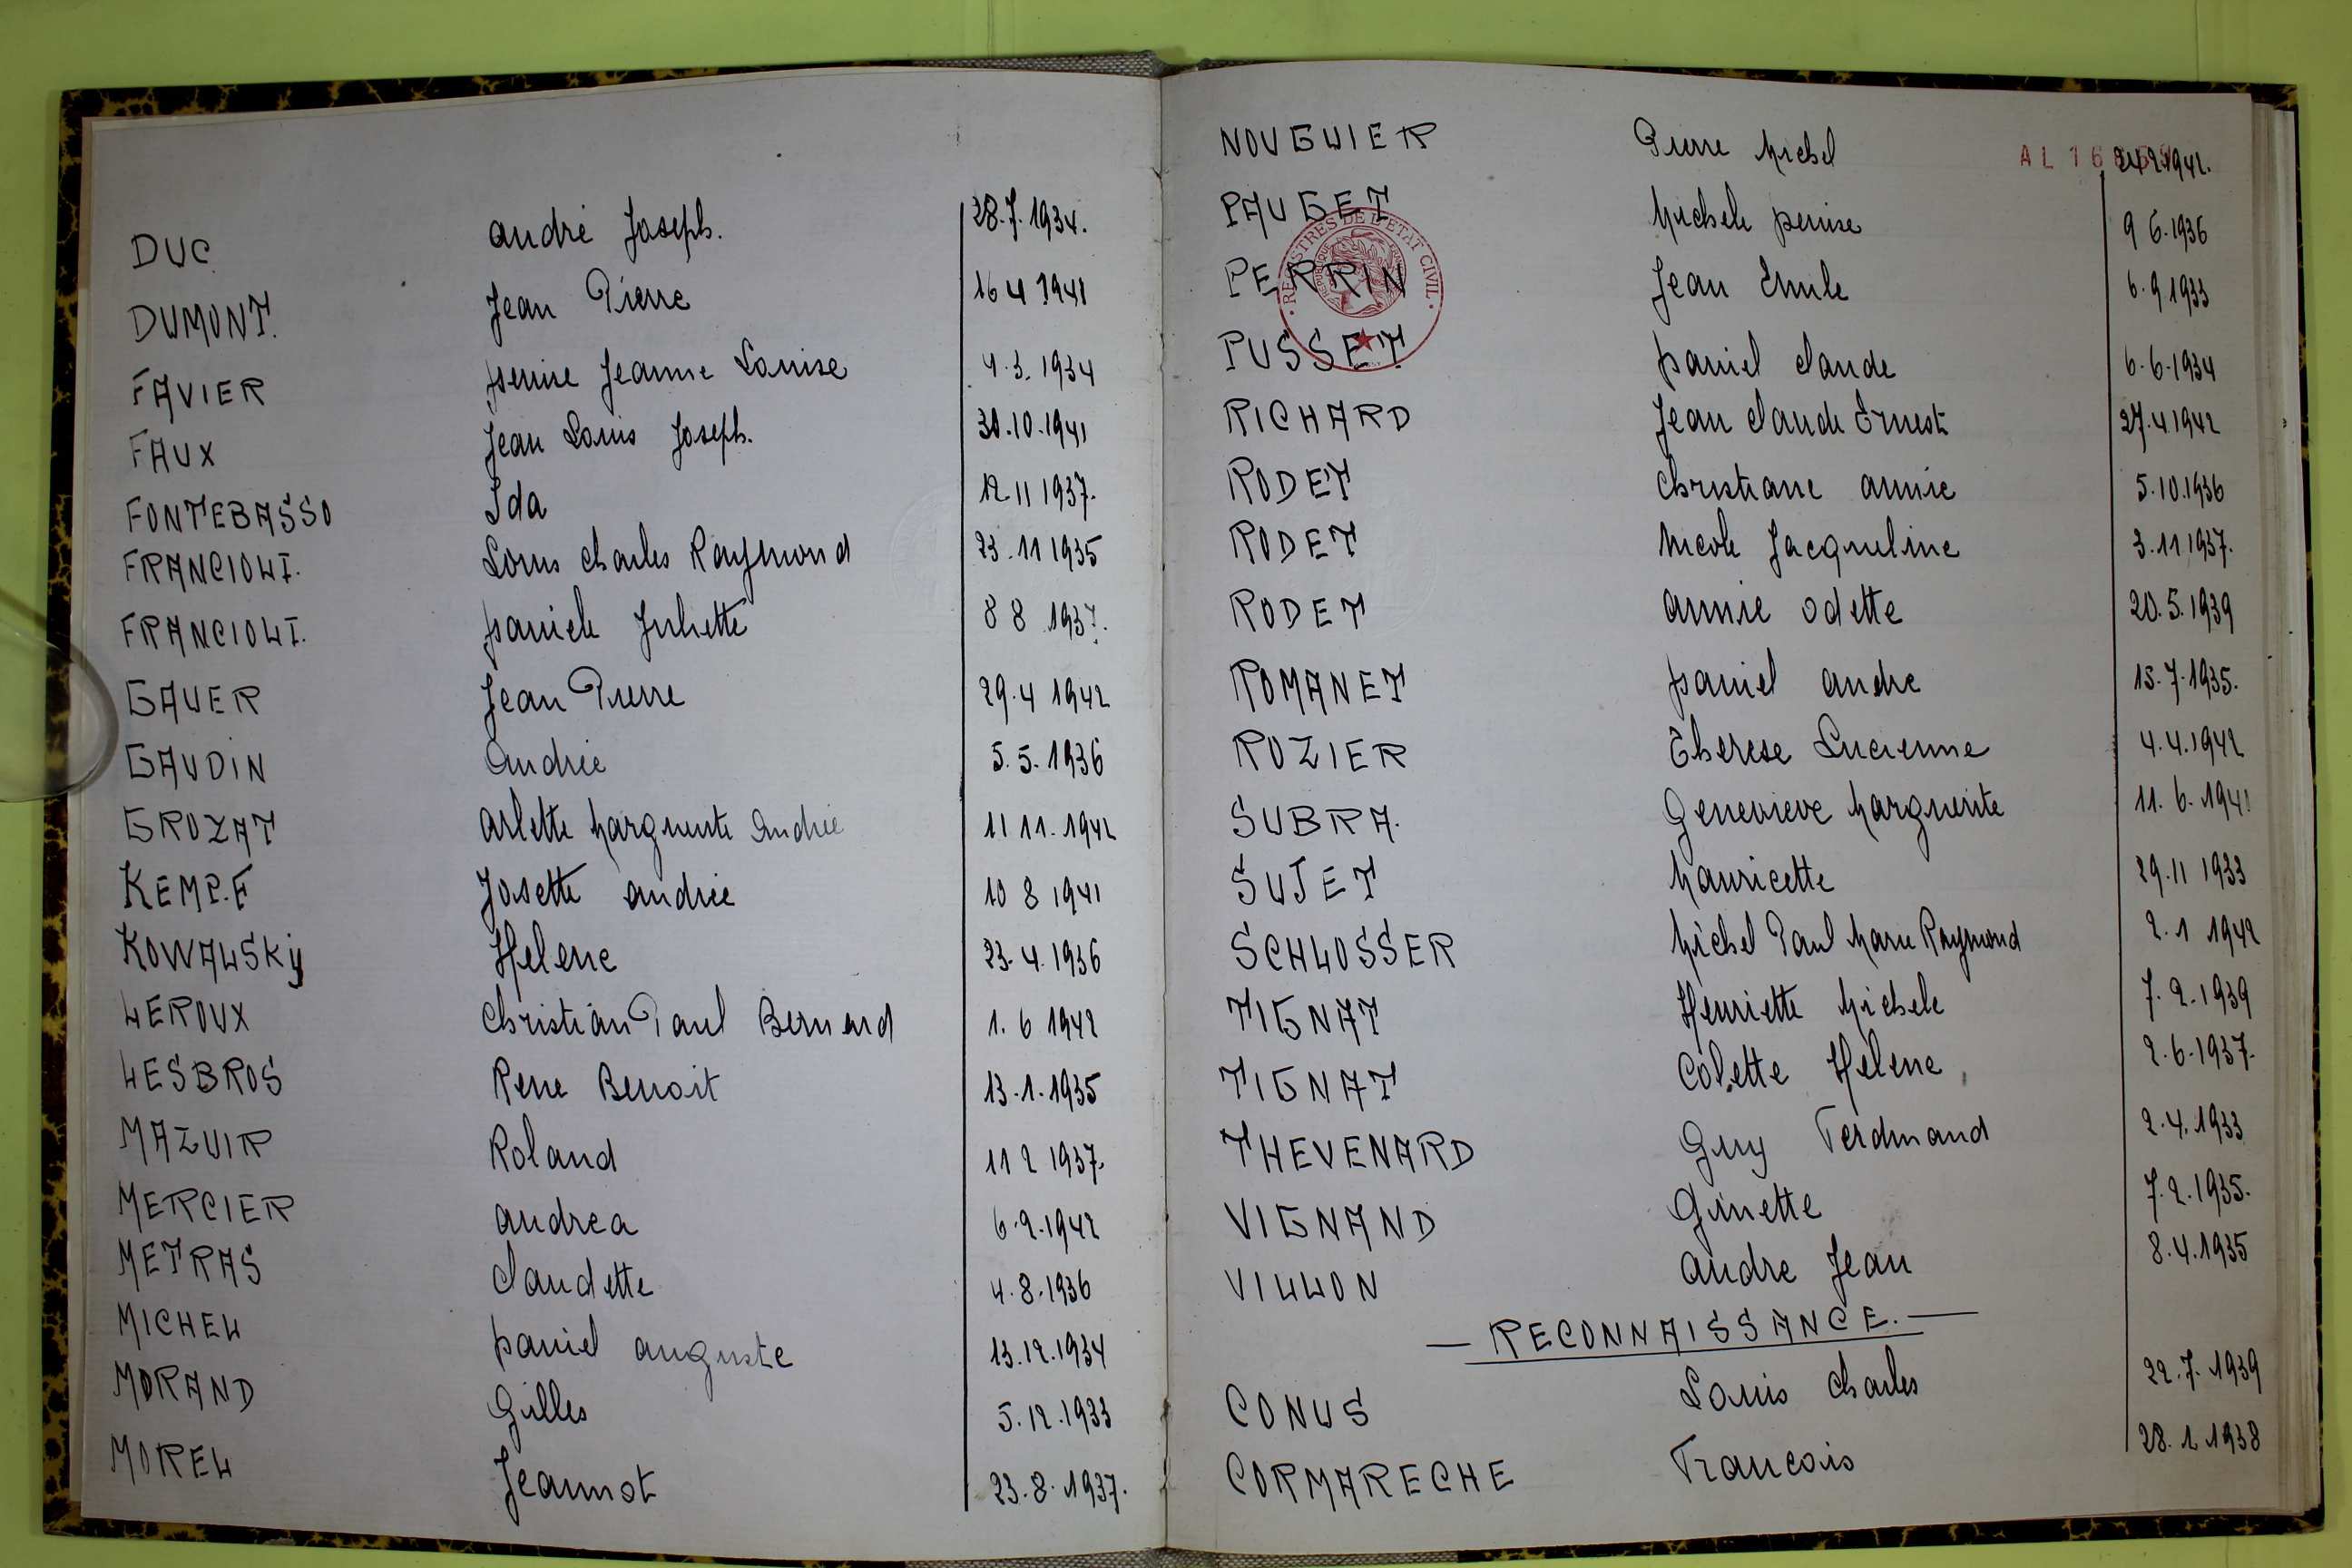 DUC André Joseph. 28.7.1934.
DUMONT. Jean Pierre 16 4 1941
FAVIER Denise Jeanne Louise 1.3.1934
FAUX Jean Louis Joseph. 30.10.1941
FONTEBASSO Ida 12.11 1937.
FRANCIOLI. Louis Charles Raymond 23.11 1935
FRANCIOLI. Daniele Juliette 8 8 1937.
GAUER Jean Pierre 29.4 1942
GAUDIN Andrée 5.5.1936
GROZAT Arlette Marguerite Andrée 11 11.1942
KEMP.F Josette Andrée 10 8 1941
KOWALSKY Helene 23.4.1936
LEROUX Christian Paul Bernard 1.6 1942
LESBROS Rene Benoit 13.1.1935
MAZUIR Roland 11 2 1937.
MERCIER Andrea 6.2.1942
METRAS Claudette 4.8.1936
MICHEL Daniel Auguste 13.12.1934
MORAND Gilles 5.12.1933
MOREL Jeannot 23.8.1937.
NOUGUIER Pierre Michel 2.1942.
AL 16
PAUGET Michele Denise 9 6.1936
PERRIN Jean Emile 6.9 1933
REGISTRES DE L'ETAT CIVIL
PUSSET Daniel Claude 6.6.1934
RICHARD Jean Claude Ernest 27.4.1942
RODET Christiane Annie 5.10.1936
RODET Nicole Jacqueline 3.11 1937.
RODET Annie Odette 20.5.1939
ROMANET Daniel Andre 15.7.1935.
ROZIER Therese Lucienne 4.4.1942
SUBRA. Genevieve Marguerite 11.6.1941
SUJET Mauricette 29.11 1933
SCHLOSSER Michel Paul Marie Raymond 2.1 1942
TIGNAT Henriette Michele 7.2.1939
TIGNAT Colette Helene 2.6.1937.
THEVENARD Guy Ferdinand 2.4.1933
VIGNAND Ginette 7.2.1935.
VILLON Andre Jean 8.4.1935
— RECONNAISSANCE. —
CONUS Louis Charles 22.7.1939
CORMARECHE Francois 28.1.1938